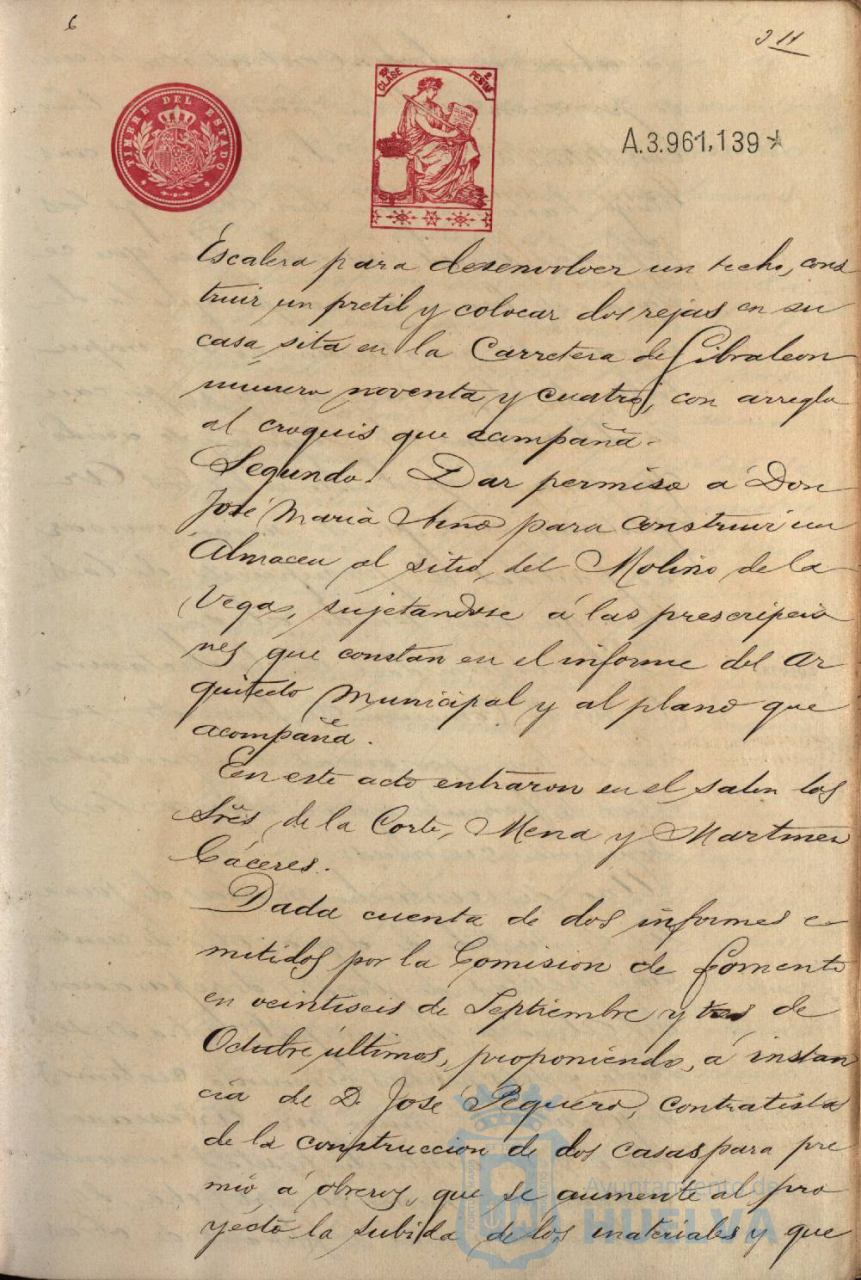 6
311
TIMBRE DEL ESTADO
10ª CLASE
2 PESETAS
A.3.961,139*
Escalera para desenvolver un techo, cons
truir un pretil y colocar dos rejas en su
casa sita en la Carretera de Gibraleon
número noventa y cuatro, con arreglo
al croquis que acompaña.
Segundo. Dar permiso á Don
José María para construir un
Almacen al sitio del Molino de la
Vega, sujetandose á las prescripcio
nes que constan en el informe del Ar
quitecto Municipal y al plano que
acompaña.
En este acto entraron en el salon los
Sres de la Corte, Mena y Martinez
Cáceres.
Dada cuenta de dos informes e
mitidos por la Comision de Fomento
en veintiseis de Septiembre y tres de
Octubre últimos, proponiendo, á instan
cia de D. José Peguero, contratista
de la construccion de dos casas para pre
mio á obreros, que se aumente al pro
yecto la subida de los materiales y que
Ayuntamiento de
HUELVA